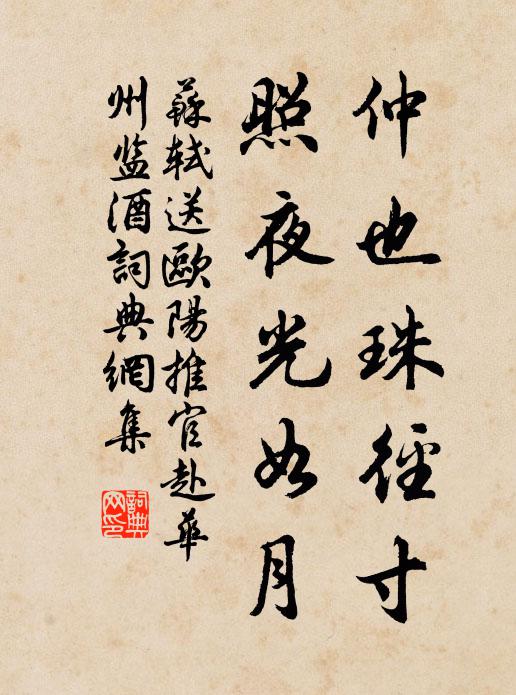 仲也珠徑寸
照夜光如月
蘇軾送歐陽推官赴華
州监酒詞典網集
詞典
网印